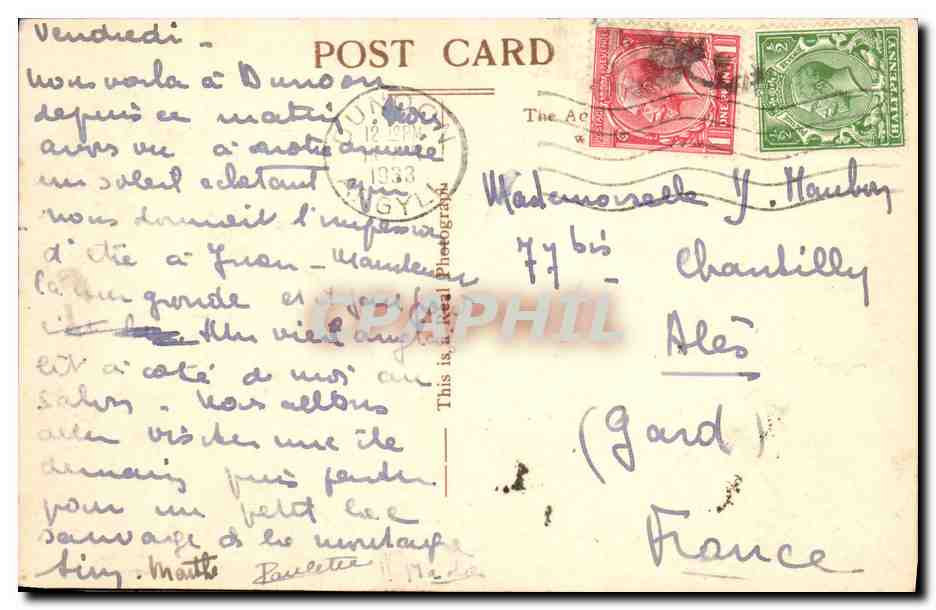 POST CARD
Vendredi -
Nous voila à Dunoon
depuis ce matin Nous
avons vu à notre arrivée
un soleil eclatant qui
nous donnait l'impression
d'être à Juan -
la mer gronde et
Un vieil anglais
lit à coté de moi au
salon - Nous allons
aller visiter une île
demain puis partir
pour un petit lac
sauvage de la montagne
Marthe Paulette
DUNOON
12 15 PM
1933
ARGYLL
ONE PENNY
HALFPENNY
The
This is a Real Photograph
Mademoiselle Y.
77 bis
Chantilly
Alès
(Gard)
France
CPAPHIL